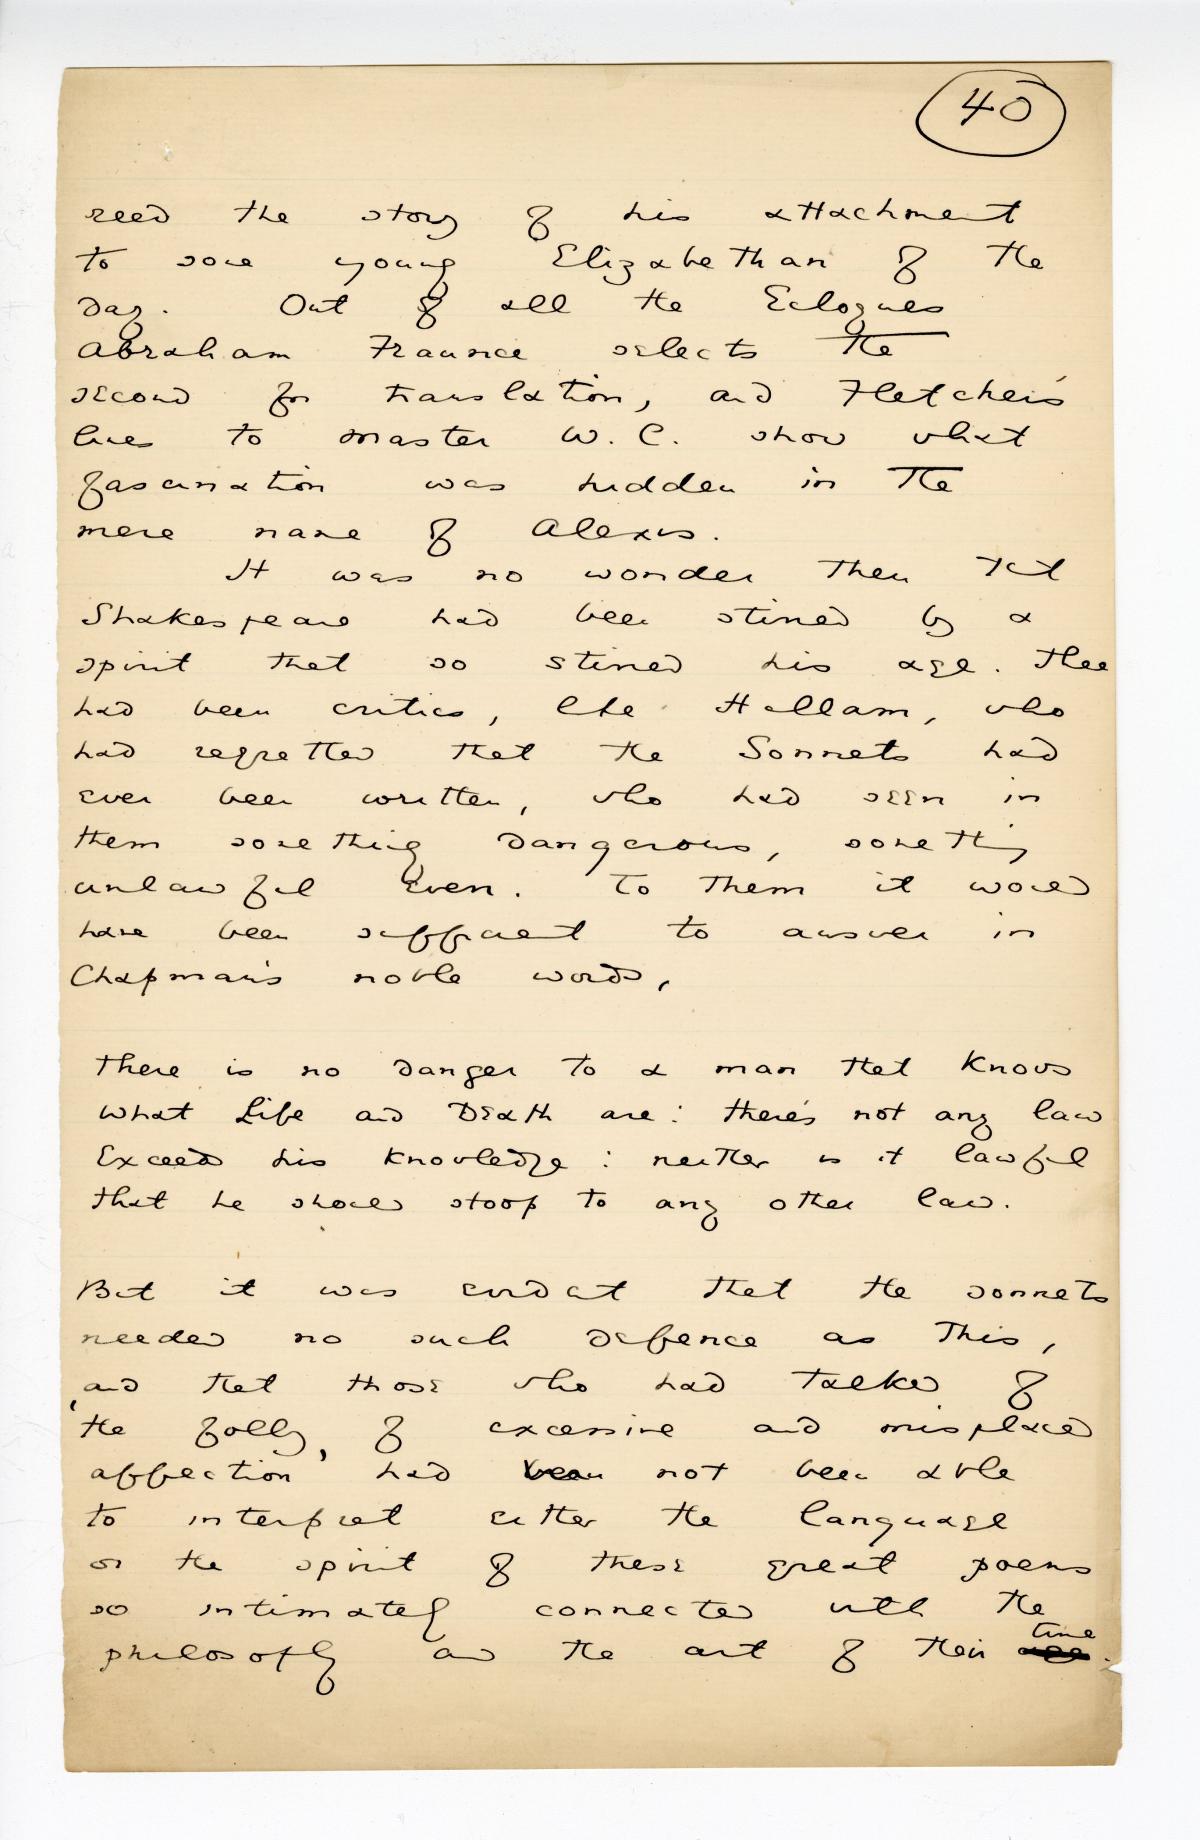 40
read the story of his attachment
to some young Elizabethan of the
day. Out of all the Eclogues
Abraham Fraunce selects the
second for translation, and Fletcher's
lines to master W. C. show what
fascination was hidden in the
mere name of Alexis.
It was no wonder then that
Shakespeare had been stirred by a
spirit that so stirred his age. There
had been critics, like Hallam, who
had regretted that the Sonnets had
ever been written, who had seen in
them something dangerous, something
unlawful even. To them it would
have been sufficient to answer in
Chapman's noble words,
There is no danger to a man that knows
What Life and Death are: there's not any law
Exceeds his knowledge: neither is it lawful
That he should stoop to any other law.
But it was evident that the sonnets
needed no such defence as this,
and that those who had talked of
'the folly of excessive and misplaced
affection' had been not been able
to interpret either the language
or the spirit of these great poems
so intimately connected with the
philosophy and the art of their age time.